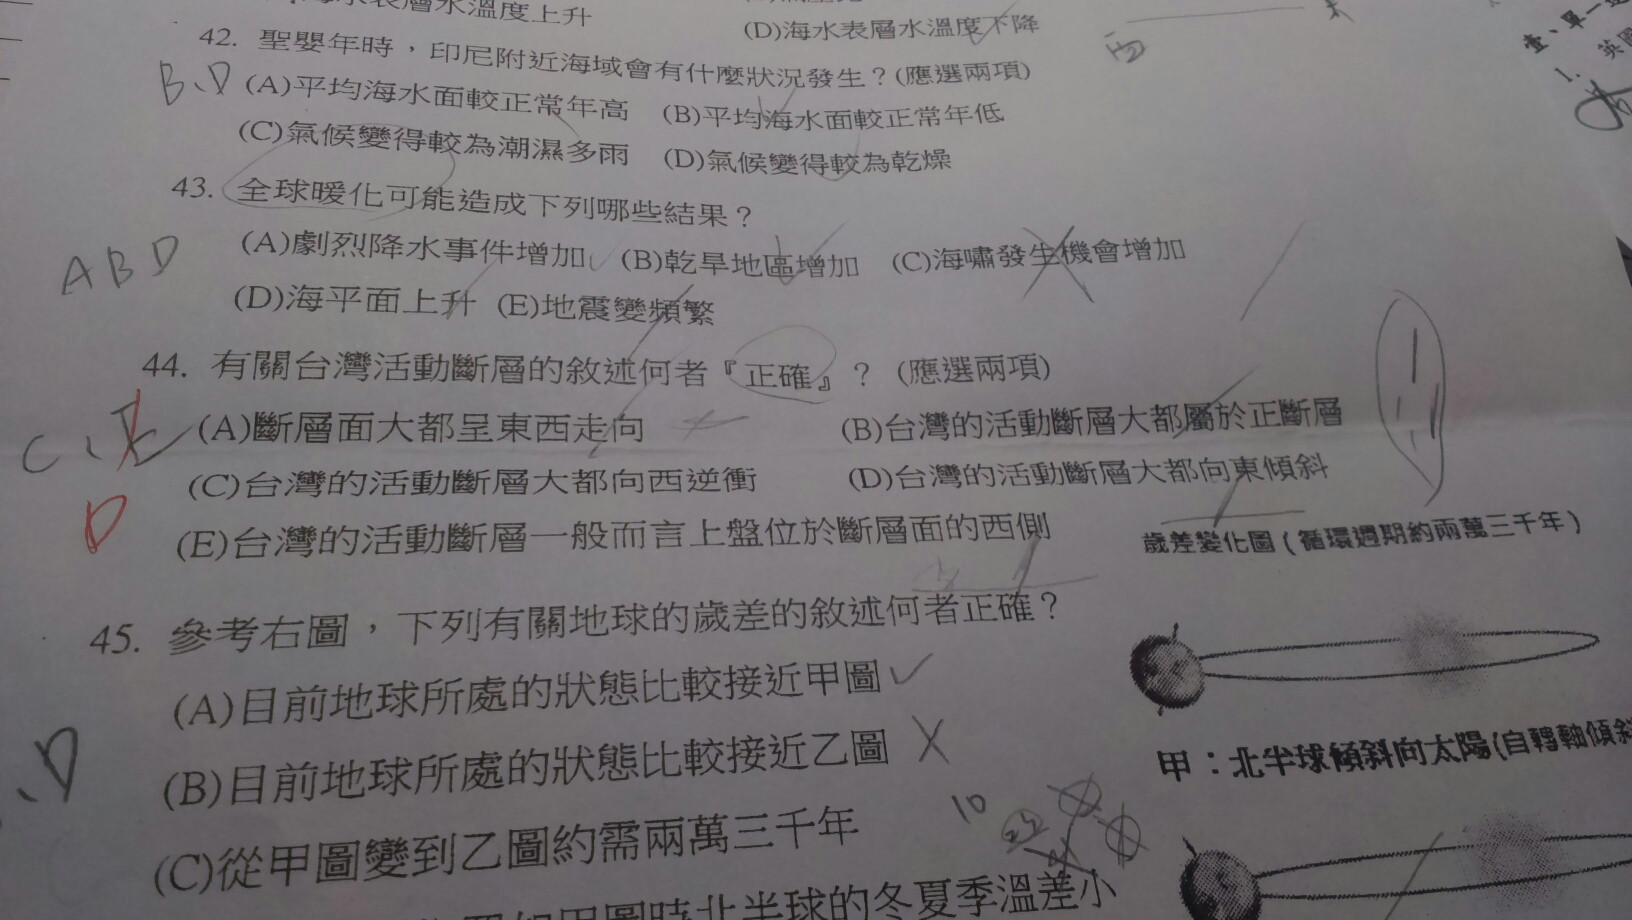 海水表層水溫度上升
(D)海水表層水溫度不降
42. 聖嬰年時，印尼附近海域會有什麼狀況發生？(應選兩項)
B、D
(A)平均海水面較正常年高 (B)平均海水面較正常年低
(C)氣候變得較為潮濕多雨 (D)氣候變得較為乾燥
43. 全球暖化可能造成下列哪些結果？
ABD
(A)劇烈降水事件增加 (B)乾旱地區增加 (C)海嘯發生機會增加
(D)海平面上升 (E)地震變頻繁
44. 有關台灣活動斷層的敘述何者『正確』？ (應選兩項)
C、E
D
(A)斷層面大都呈東西走向 (B)台灣的活動斷層大都屬於正斷層
(C)台灣的活動斷層大都向西逆衝 (D)台灣的活動斷層大都向東傾斜
(E)台灣的活動斷層一般而言上盤位於斷層面的西側
45. 參考右圖，下列有關地球的歲差的敘述何者正確？
(A)目前地球所處的狀態比較接近甲圖
、D
(B)目前地球所處的狀態比較接近乙圖
(C)從甲圖變到乙圖約需兩萬三千年
甲圖時北半球的冬夏季溫差小
10
歲差變化圖 ( 循環週期約兩萬三千年 )
甲：北半球傾斜向太陽(自轉軸傾斜
壹、單一選
1. 英國